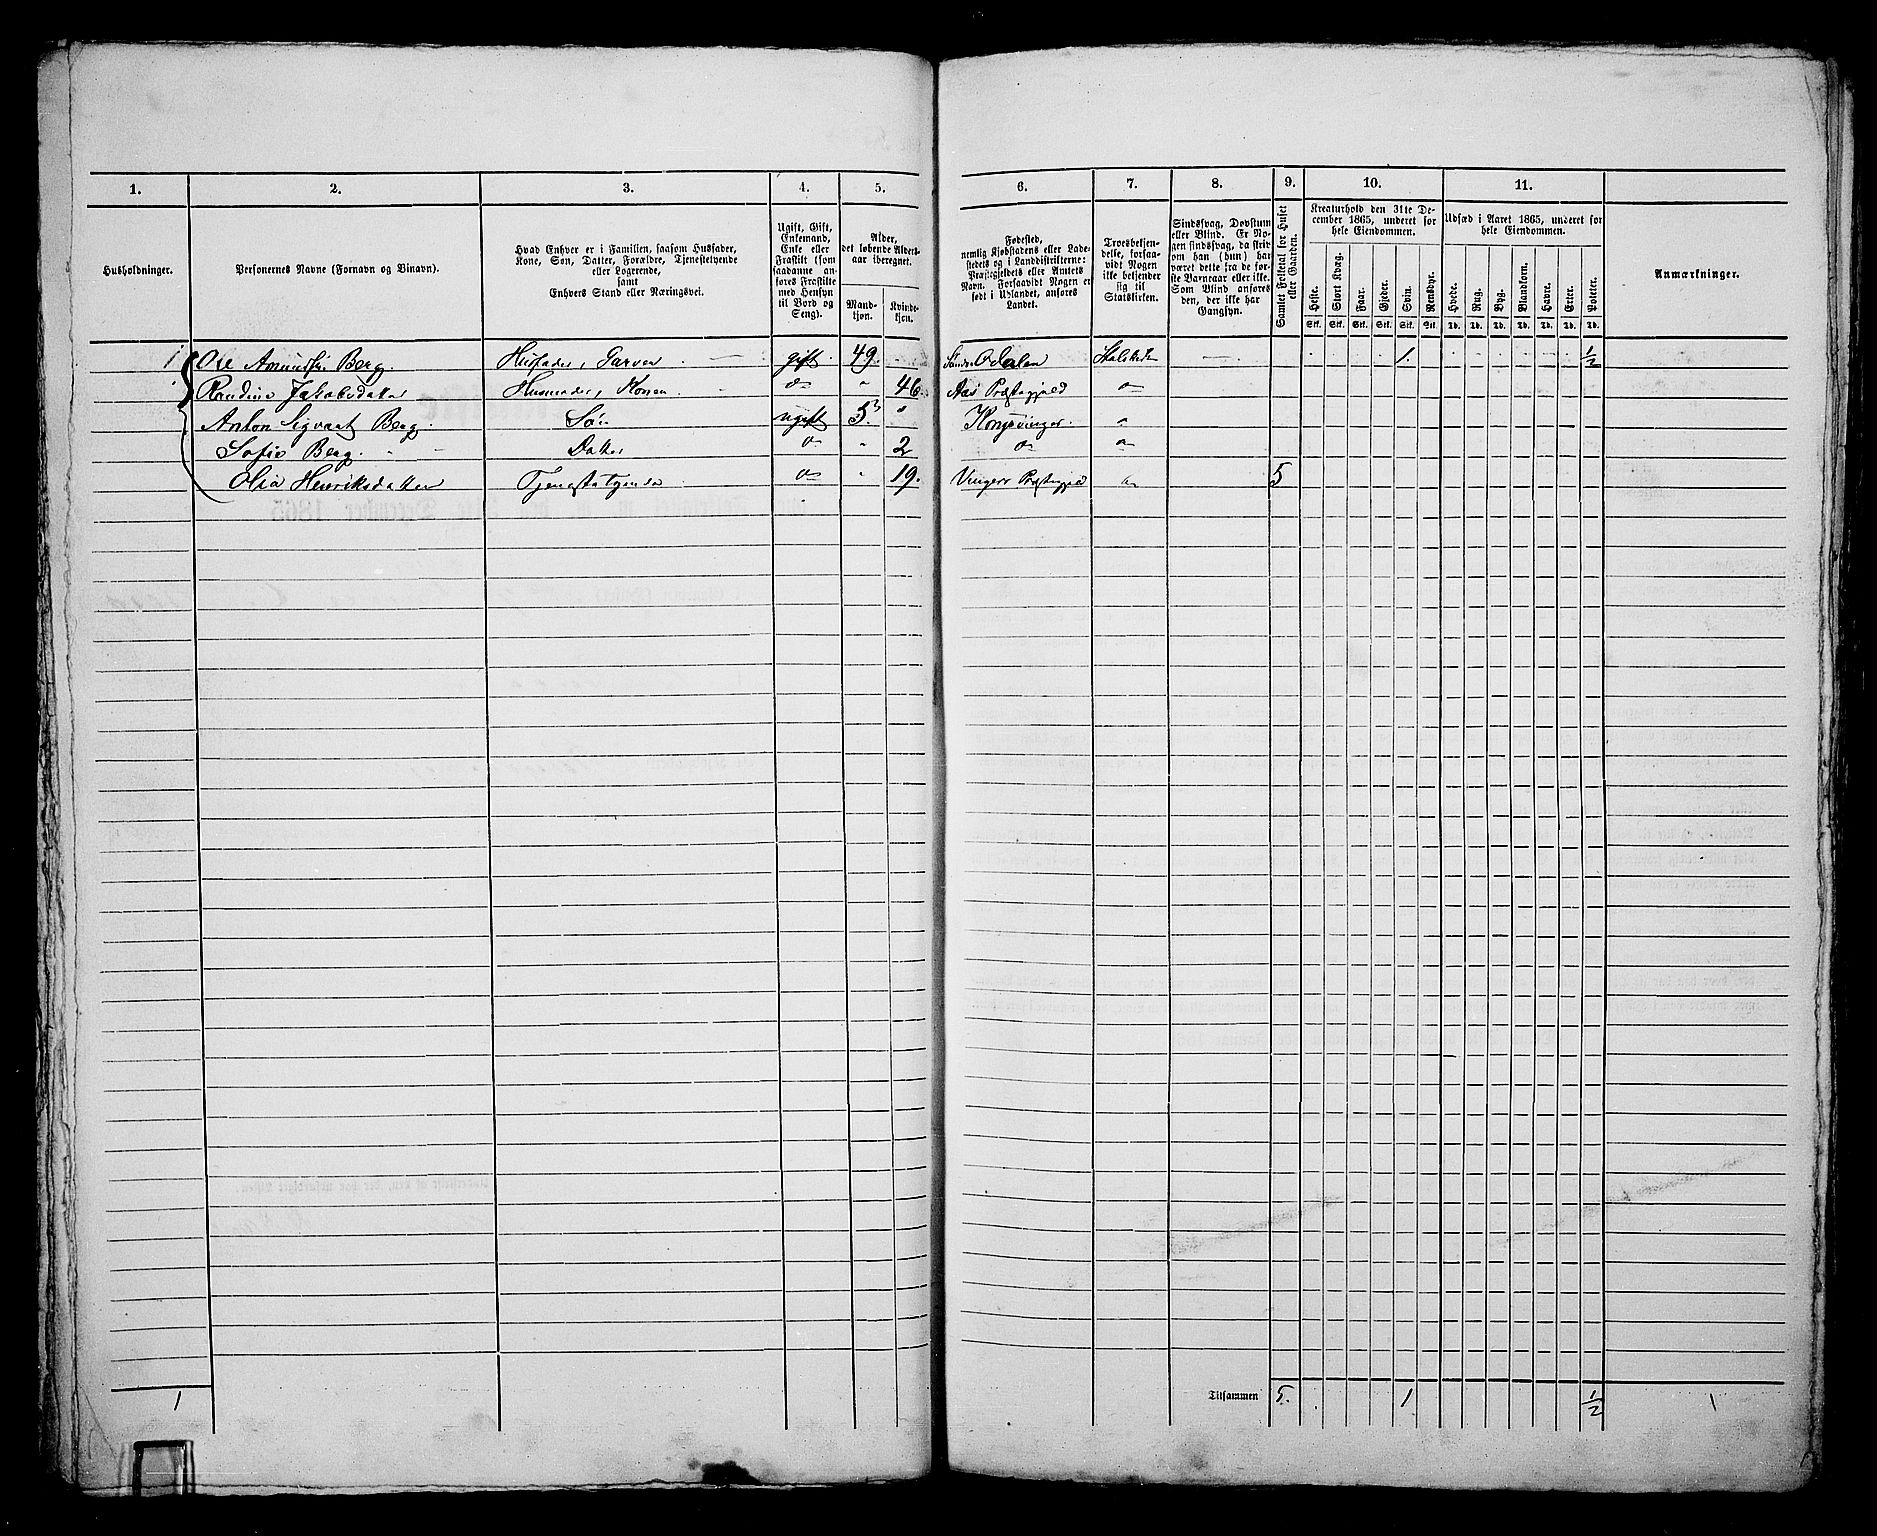 1. 2. 3. 4. 5. 6. 7. 8. 9. 10. 11.
Husholdninger.
Personernes Navne (Fornavn og Binavn).
Hvad Enhver er i Familien, saasom Husfader,
Kone, Søn, Datter, Forældre, Tjenestetyende
eller Logerende,
samt
Enhvers Stand eller Næringsvei.
Ugift, Gift,
Enkemand,
Enke eller
Fraskilt (som
saadanne an-
føres Fraskilte
med Hensyn
til Bord og
Seng).
Alder,
det løbende Alders-
aar iberegnet.
Mand-
kjøn.
Kvinde-
kjøn.
Fødested,
nemlig Kjøbstadens eller Lade-
stedets og i Landdistrikterne:
Præstegjeldets eller Amtets
Navn. Forsaavidt Nogen er
født i Udlandet, anføres
Landet.
Troesbekjen-
delse, forsaa-
vidt Nogen
ikke bekjender
sig til
Statskirken.
Sindssvag, Døvstum
eller Blind. Er No-
gen sindssvag, da skriv
om han (hun) har
været dette fra de før-
ste Barneaar eller ikke.
Som Blind anføres
den, der ikke har
Gangsyn.
Samlet Folketal for Huset
eller Gaarden.
Kreaturhold den 31te De-
cember 1865, underet for
hele Eiendommen.
Heste. Stort Kvæg. Faar. Gjeder. Svin. Rensdyr.
Stk. Stk. Stk. Stk. Stk. Stk.
Udsæd i Aaret 1865, underet for
hele Eiendommen.
Hvede. Rug. Byg. Blandkorn. Havre. Erter. Poteter.
Td. Td. Td. Td. Td. Td. Td.
Anmærkninger.
1 Ole Amundsen Berg. Husfader, Garver gift 49. Søndre Odalen Statskirken 1. 1/2
Randine Jakobsdatter Husmoder, Konen do " 46. Aas Præstegjeld do
Anton Sigvart Berg Søn ugift 5. 3 " Kongsvinger "
Sofie Berg. Datter do " 2 do do
Olia Henriksdatter Tjenestetyende do " 19. Vinger Præstegjeld do 5
1 Tilsammen 5. 1 1/2 1